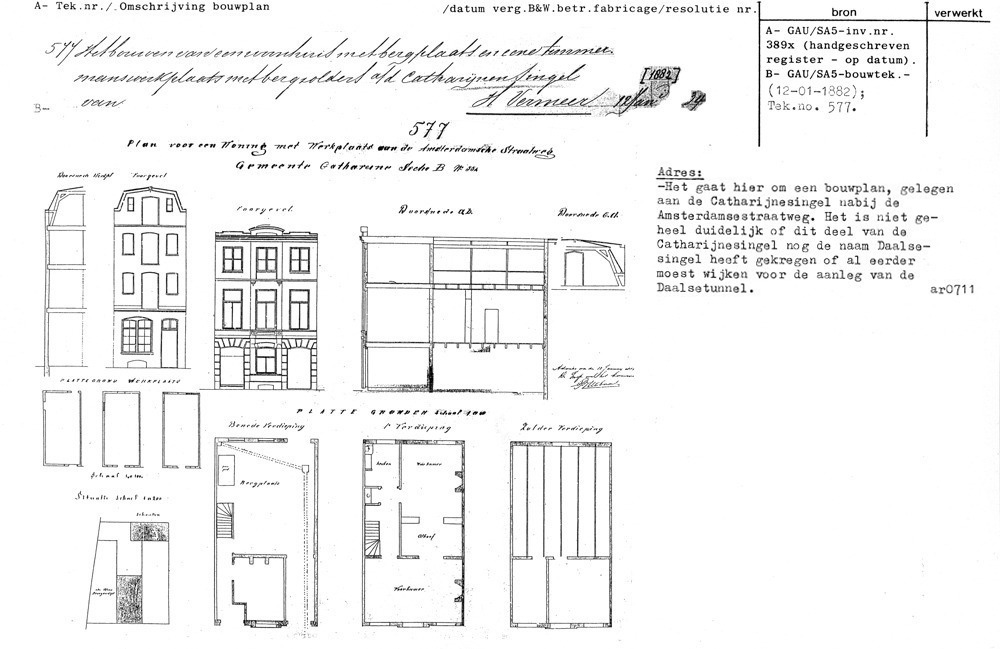 A- Tek.nr./ Omschrijving bouwplan /datum verg.B&W.betr.fabricage/resolutie nr.
bron
verwerkt
577 Het bouwen van een woonhuis met bergplaats en eene timmer
manswerkplaats met bergzolders a/d Catharijnensingel
van H. Vermeer 12 Jan
[1882]
24
B-
A- GAU/SA5-inv.nr.
389x (handgeschreven
register - op datum).
B- GAU/SA5-bouwtek.-
(12-01-1882);
Tek.no. 577.
577
Plan voor een Woning met Werkplaats aan de Amsterdamsche Straatweg
Gemeente Catharijne Sectie B No
Adres:
-Het gaat hier om een bouwplan, gelegen
aan de Catharijnesingel nabij de
Amsterdamsestraatweg. Het is niet ge-
heel duidelijk of dit deel van de
Catharijnesingel nog de naam Daalse-
singel heeft gekregen of al eerder
moest wijken voor de aanleg van de
Daalsetunnel. ar0711
Voorgevel
Voorgevel
Doorsnede A.B.
Doorsnede C.D.
PLATTEGROND WERKPLAATS
Schaal
PLATTE GRONDEN Schaal
Benede Verdieping
1e Verdieping
Zolder Verdieping
Bergplaats
Keuken
Alkoof
Voorkamer
Situatie Schaal